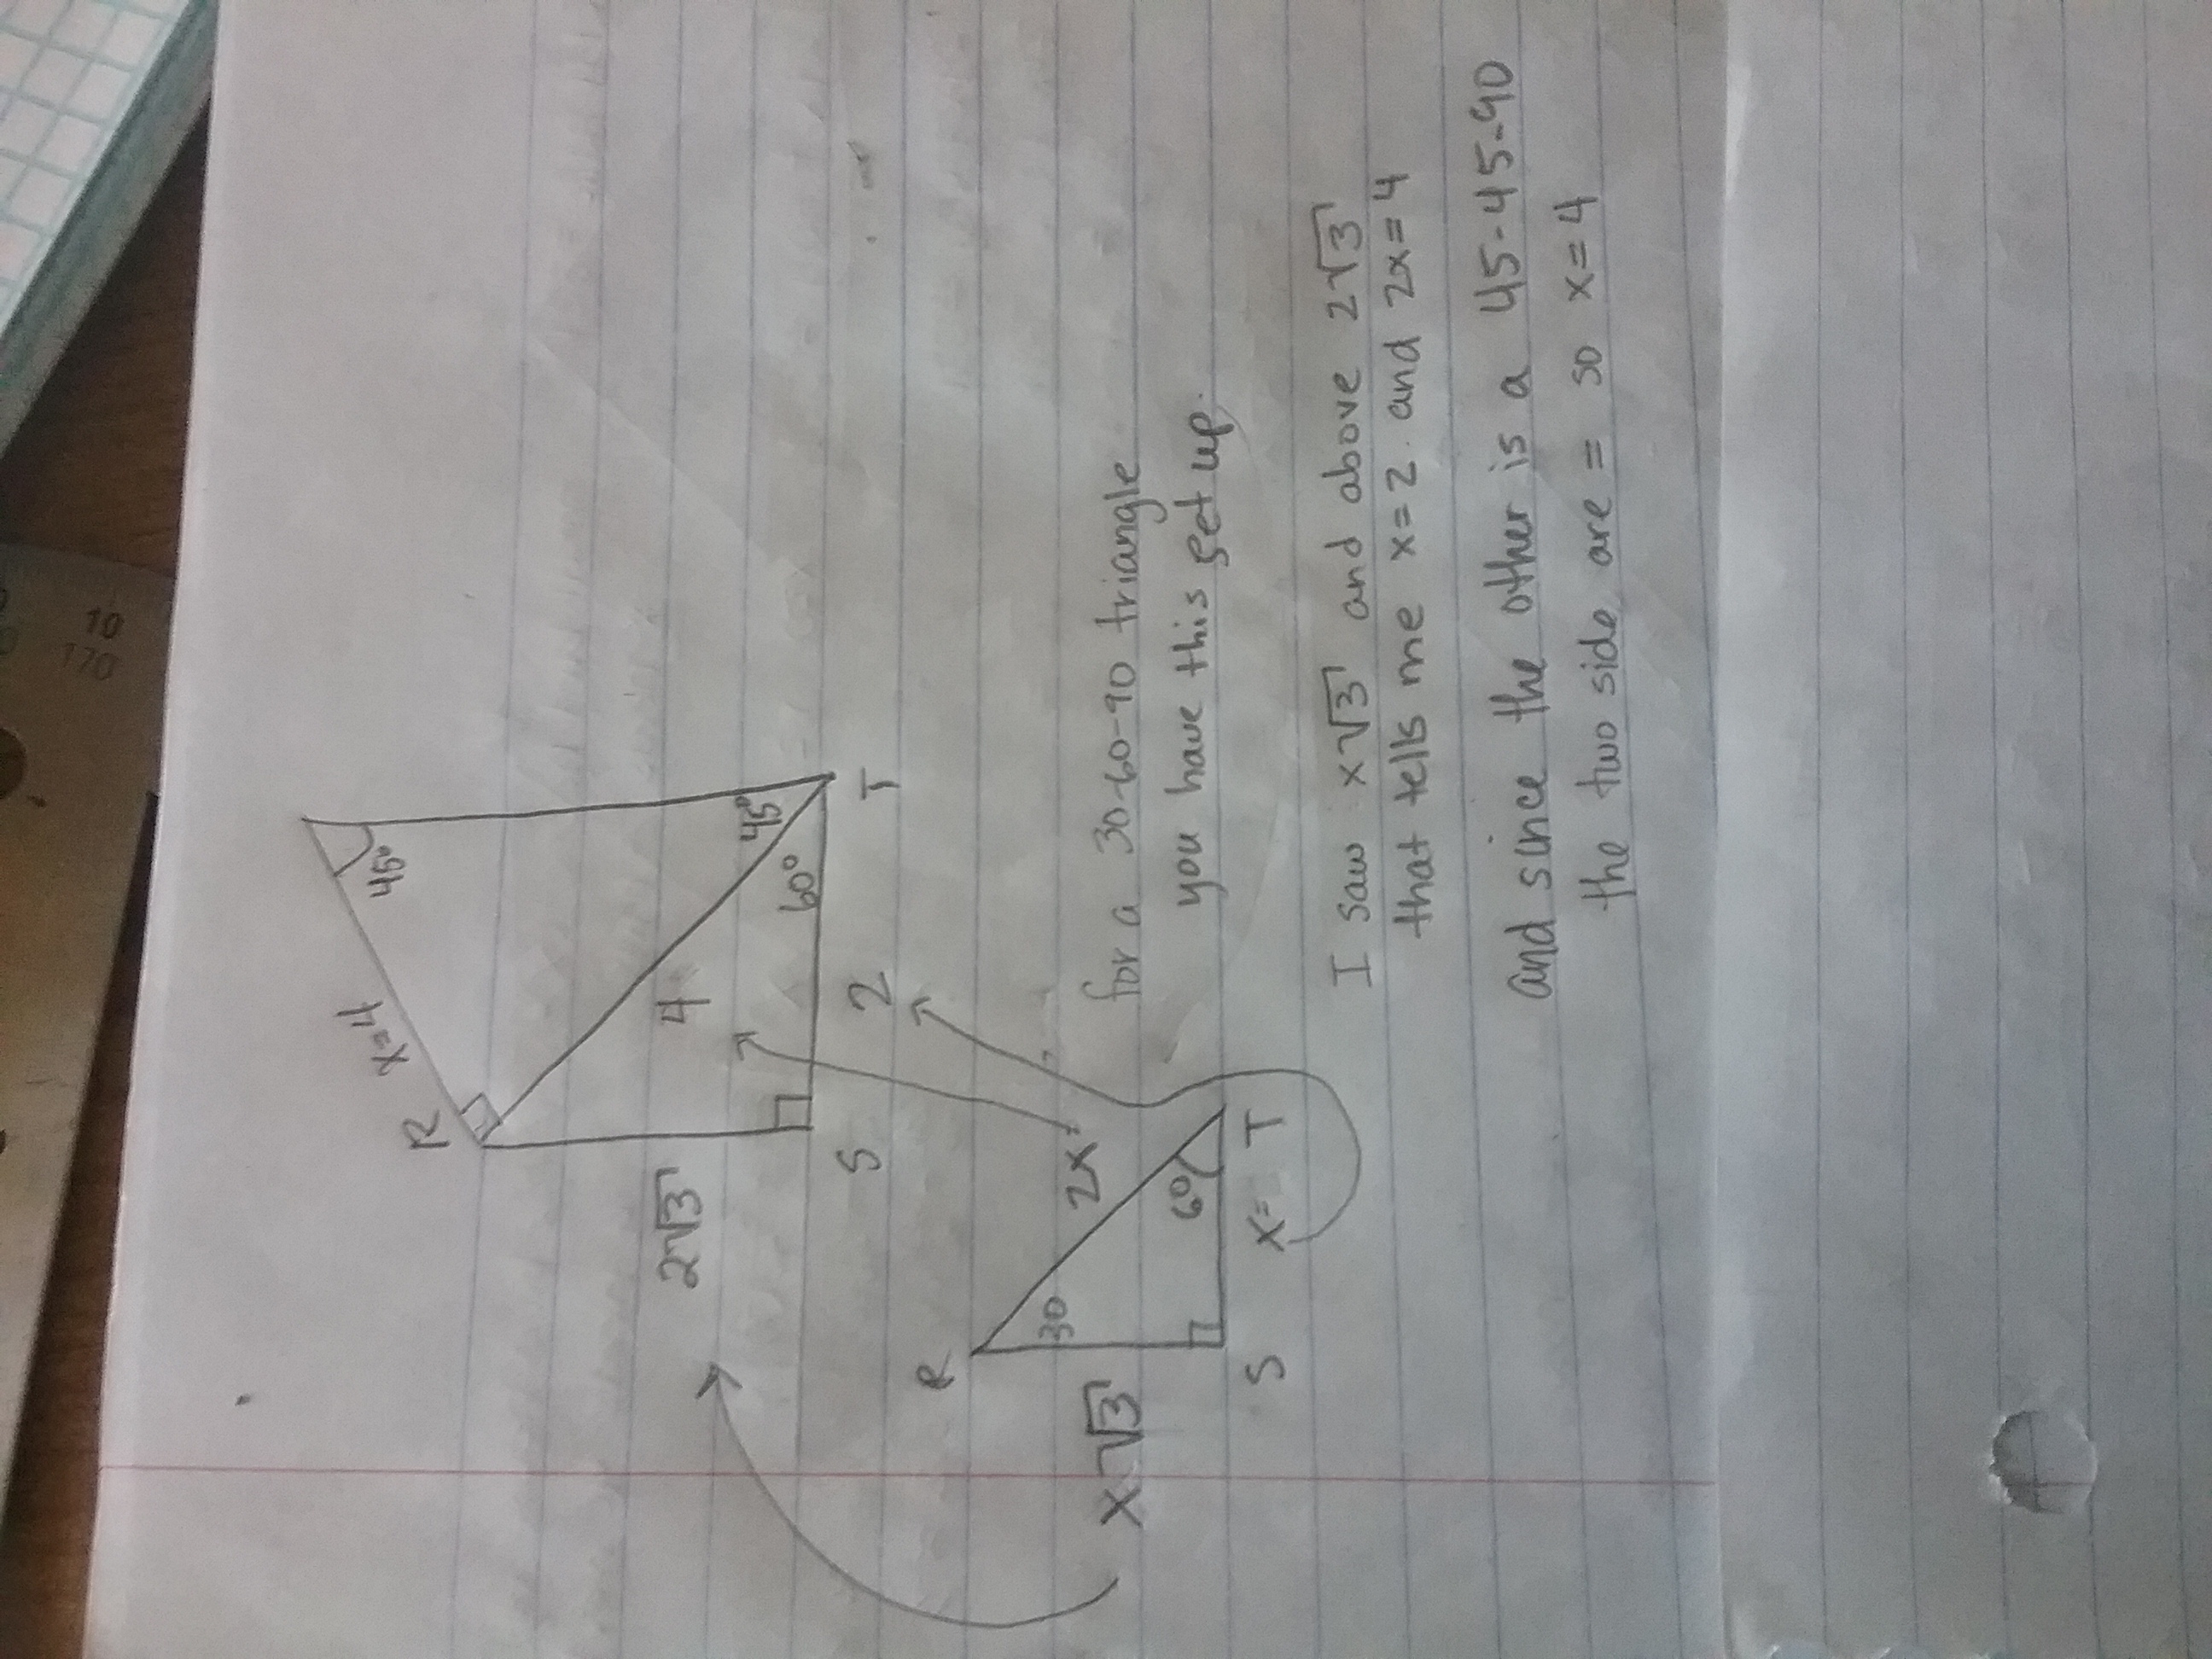 R
x=4
45°
2√3
4
45°
60°
S
2
T
R
30
2x
x√3
60
S
x=
T
for a 30-60-90 triangle
you have this set up.
I saw x√3 and above 2√3
that tells me x=2 and 2x=4
and since the other is a 45-45-90
the two side are = so x=4
10
170